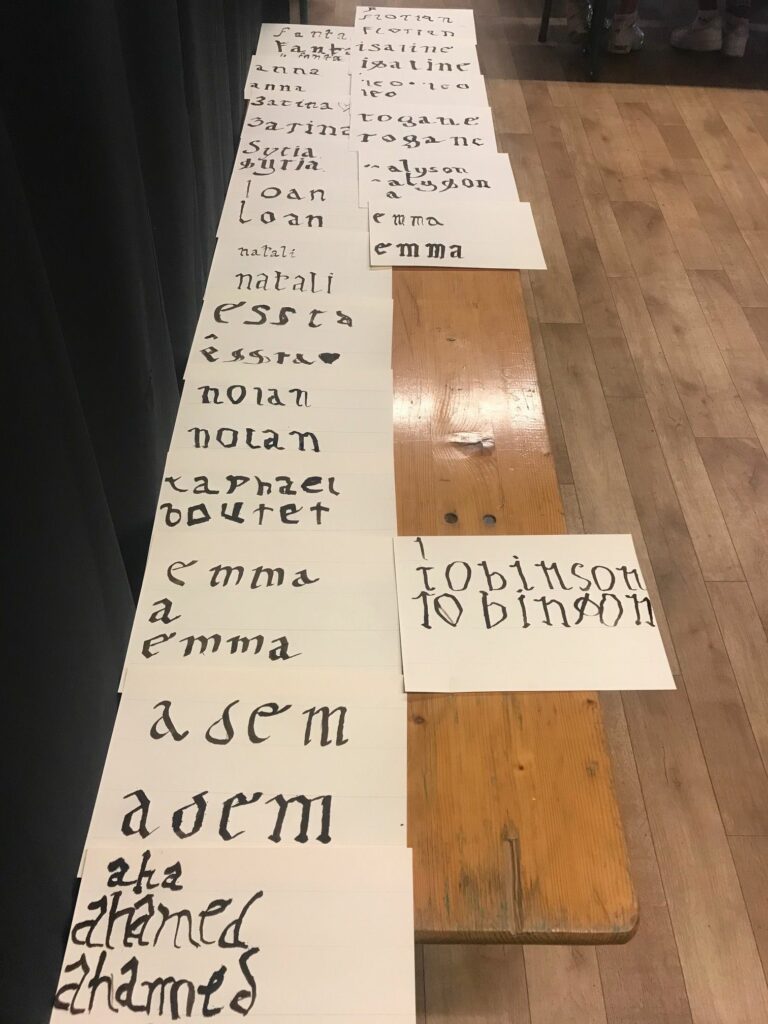 fanta
fanta
fanta
anna
anna
zarina
zarina
Syria
syria
loan
loan
natali
natali
essra
êssra♥
nolan
nolan
raphael
boutet
emma
a
emma
adem
adem
aha
ahamed
ahamned
florian
florian
isaline
isaline
leo·leo
leo
rogane
rogane
alyson
alyson
a
emma
emma
robinson
robinson